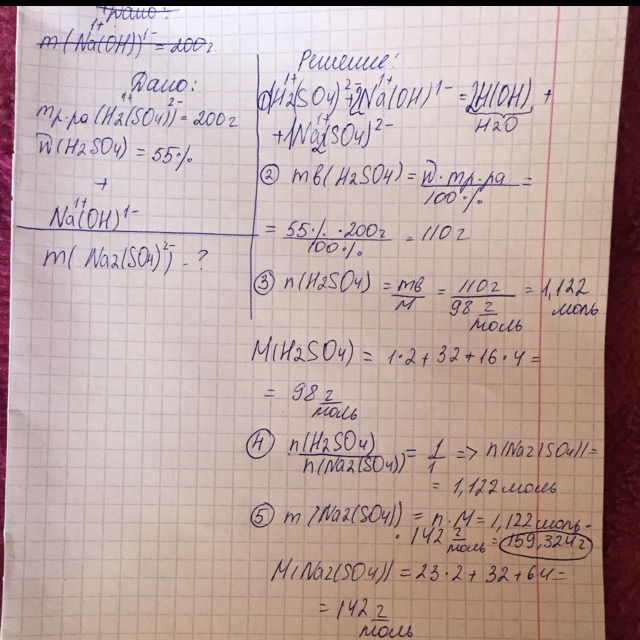 Дано:
m(Na(OH)) = 200г
Дано:
mр-ра(H2(SO4)) = 200г
w(H2SO4) = 55%
+
Na(OH)
m(Na2(SO4)) - ?
Решение:
① H2(SO4) + 2Na(OH) = 2H(OH) +
H2O
+ 1Na2(SO4)
② mв(H2SO4) = w·mр-ра / 100% =
= 55%·200г / 100% = 110г
③ n(H2SO4) = mв / M = 110г / 98 г/моль = 1,122 моль
M(H2SO4) = 1·2+32+16·4 =
= 98 г/моль
④ n(H2SO4) / n(Na2(SO4)) = 1/1 => n(Na2(SO4)) =
= 1,122 моль
⑤ m(Na2(SO4)) = n·M = 1,122 моль·
· 142 г/моль = 159,324г
M(Na2(SO4)) = 23·2+32+64 =
= 142 г/моль